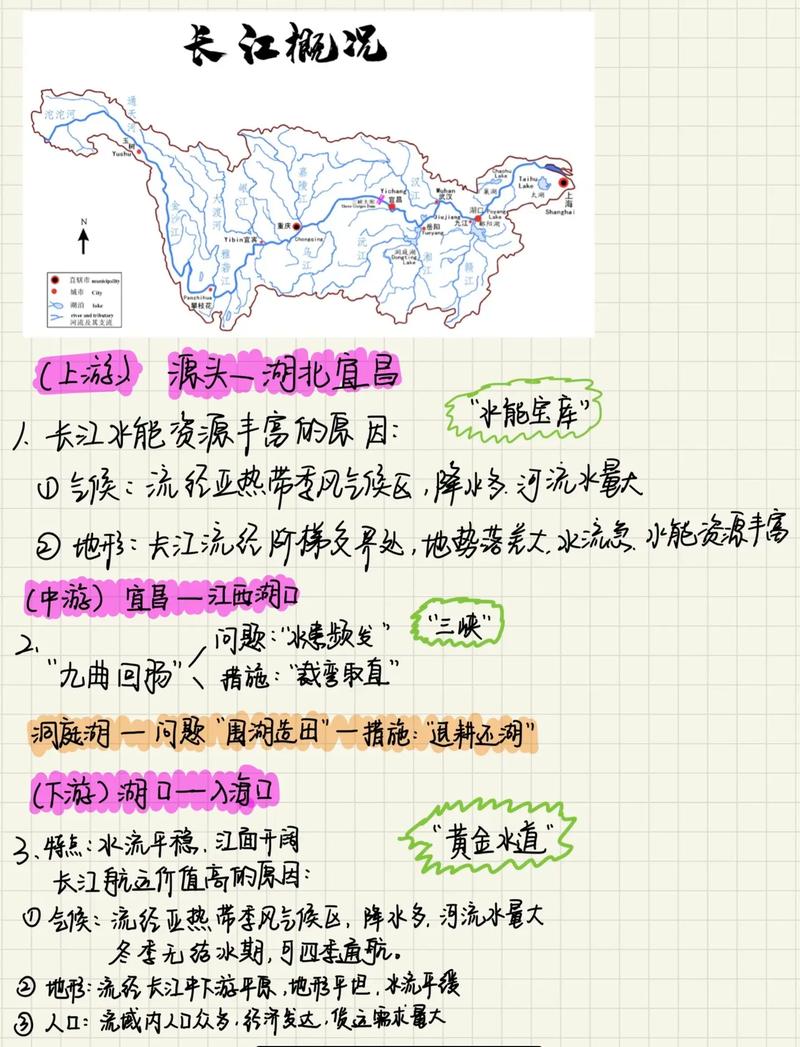 长江概况
沱沱河
通天河
玉树
Yushu
金沙江
大渡河
岷江
嘉陵江
汉江
Yichang
宜昌
Wuhan
武汉
Chaohu Lake
巢湖
Taihu Lake
太湖
上海
Shanghai
湖口
Poyang Lake
鄱阳湖
Jiujiang
九江
岳阳
Yueyang
洞庭湖
Dongting Lake
重庆
Chongqing
Yibin宜宾
雅砻江
乌江
沅江
湘江
赣江
Panzhihua
攀枝花
N
直辖市 municipality
城市 City
湖泊 lake
river and tributary
河流及其支流
(上游) 源头—湖北宜昌
"水能宝库"
1. 长江水能资源丰富的原因:
① 气候: 流经亚热带季风气候区,降水多.河流水量大
② 地形: 长江流经阶梯交界处,地势落差大.水流急.水能资源丰富
(中游) 宜昌—江西湖口
"三峡"
2. "九曲回肠"
问题:"水患频发"
措施:"裁弯取直"
洞庭湖—问题"围湖造田"—措施:"退耕还湖"
(下游) 湖口—入海口
"黄金水道"
3、特点:水流平稳.江面开阔
长江航运价值高的原因:
① 气候: 流经亚热带季风气候区, 降水多.河流水量大
冬季无结冰期,可四季通航。
② 地形:流经长江中下游平原,地形平坦,水流平缓
③ 人口: 流域内人口众多,经济发达,货运需求量大